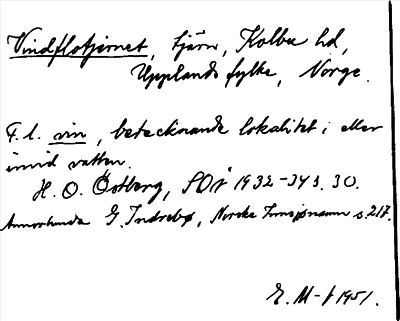 Vindflotjernet, tjärn, Kolbu hd,
Upplands fylke, Norge.
F. l. vin, betecknande lokalitet i eller
invid vatten.
H. O. Östberg, SOÅ 1932-34 s. 30.
Annorlunda G. Indrebø, Norske Innsjønamn s. 217.
E. M-f 1951.